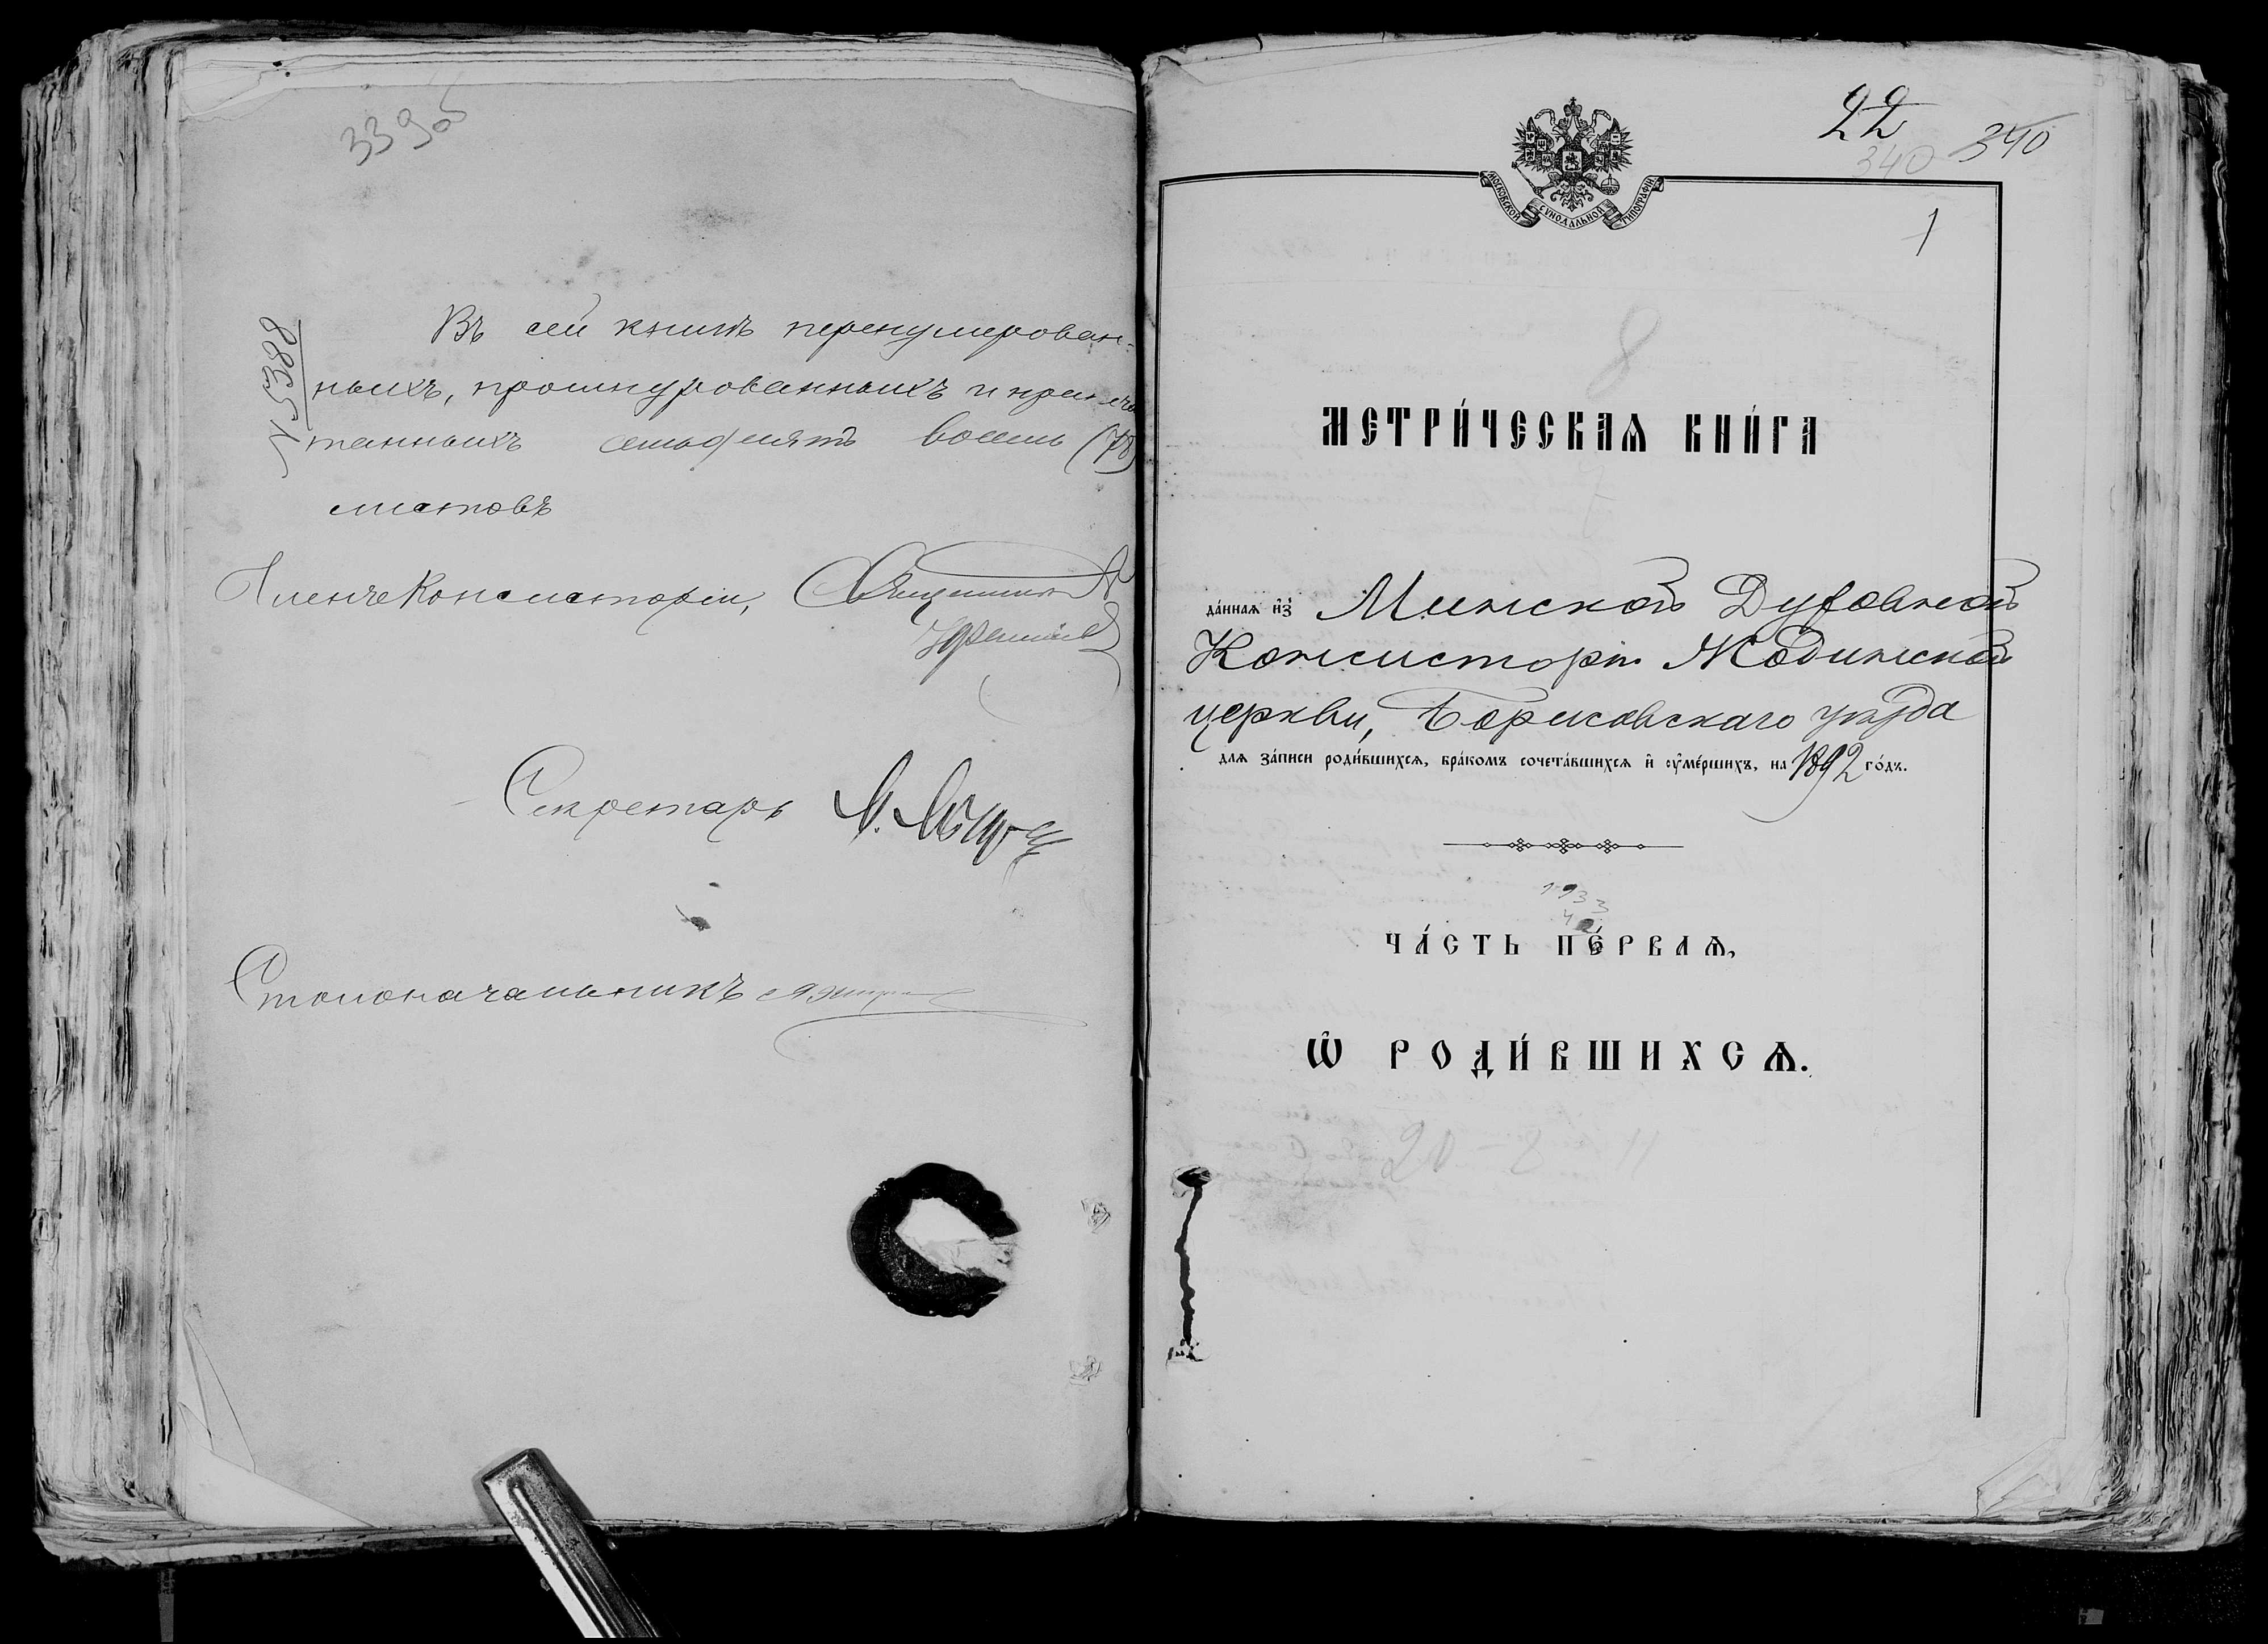 339об
№ 5388
Въ сей книгѣ перенумерован-
ныхъ, прошнурованныхъ и припеча
танныхъ семьдесятъ восемь (78)
листовъ
Членъ Консисторіи, Священникъ
Секретарь
Столоначальникъ
22
340 340
МОСКОВСКОЙ СѴНОДАЛЬНОЙ ТИПОГРАФІИ
1
8
МЕТРИ́ЧЕСКАѦ КНИ́ГА
да́ннаѧ и҆з̾ Минской Духовной
Консисторіи Жодинской
церкви, Борисовскаго уѣзда
длѧ за́писи роди́вшихсѧ, бра́комъ сочета́вшихсѧ и҆ ᲂу҆ме́ршихъ, на 1892 го́дъ.
1933
42
ЧА́СТЬ ПЕ́РВАѦ,
Ѡ҆ РОДИ́ВШИХСѦ.